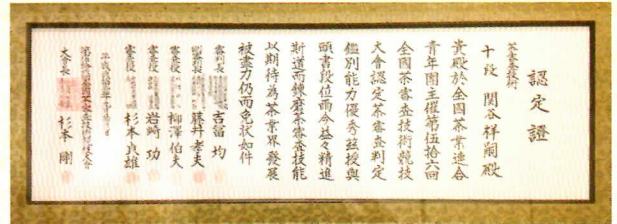 認定證
茶審査技術
十段 関谷祥嗣殿
貴殿於全国茶業連合
青年団主催第五拾六回
全国茶審査技術競技
大會認定茶審査判定
鑑別能力優秀茲授與
頭書段位而今益々精進
斯道而錬磨茶審査技能
以期待為茶業界發展
被盡力仍而免状如件
審判長 吉留 均
副審判長 藤井孝夫
審査役 柳澤伯夫
審査役 岩崎 功
審査役 杉本良雄
大會長 杉本 剛